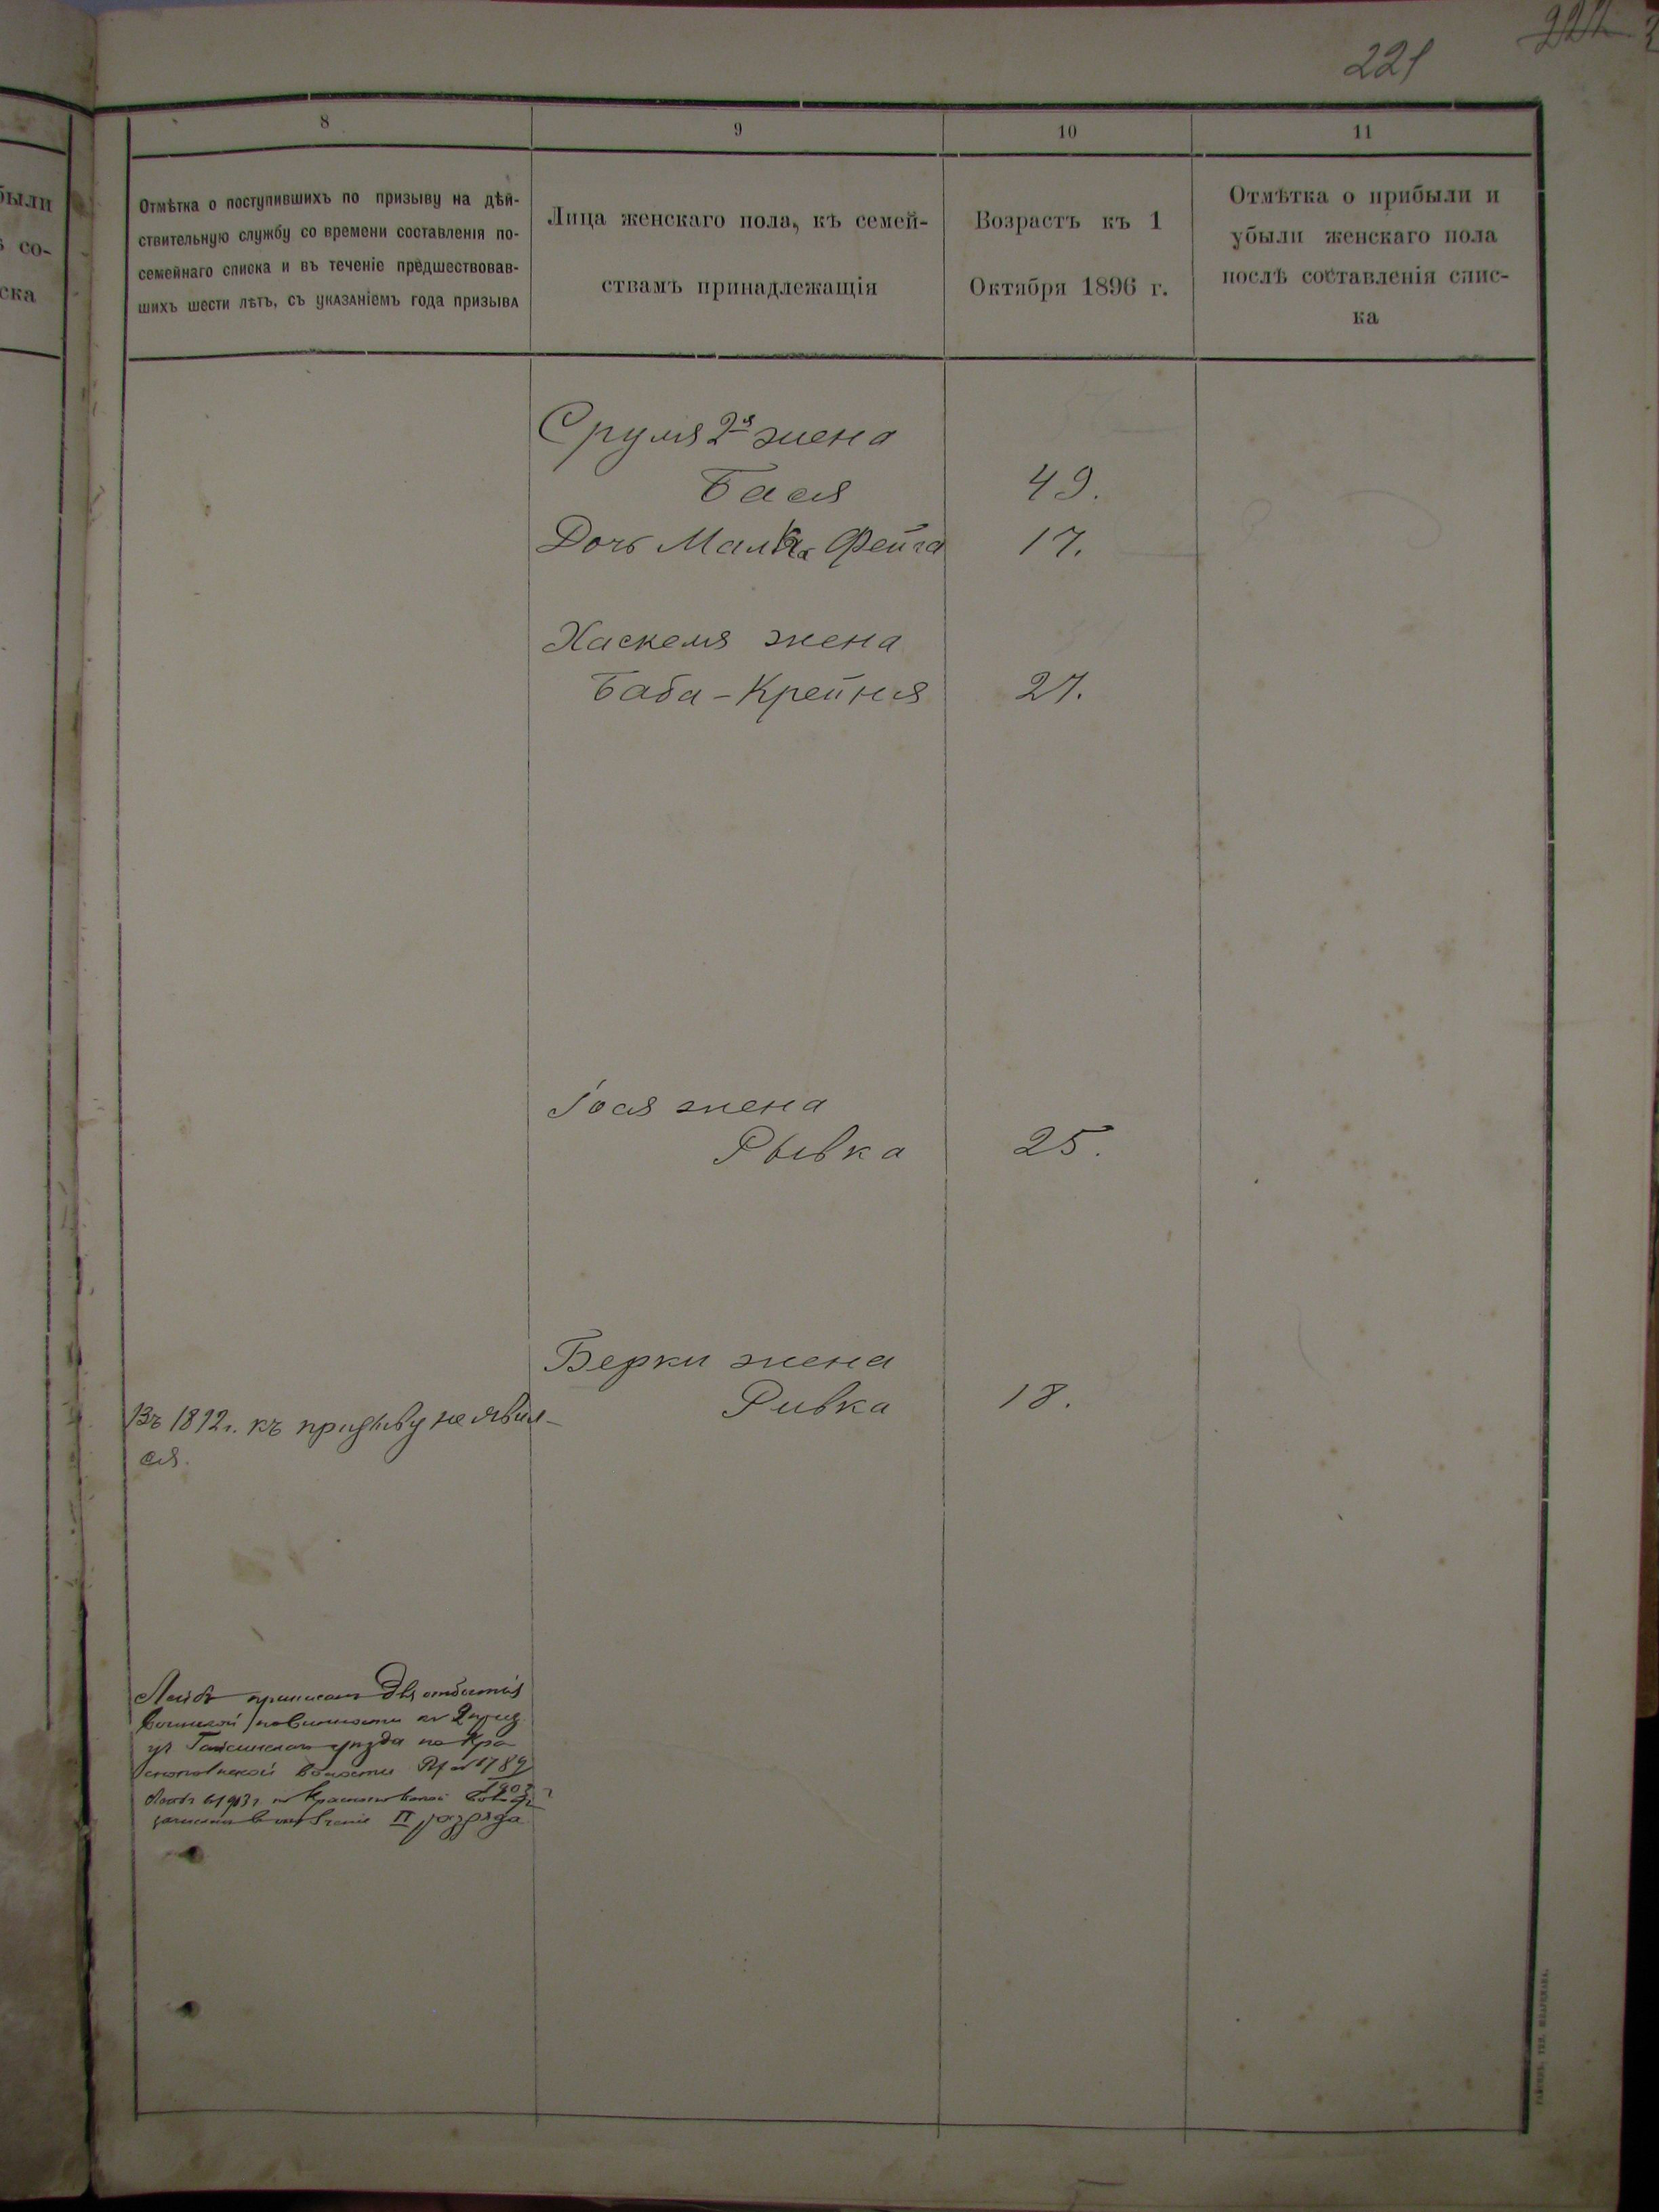 221
8
9
10
11
были
со-
ска
Отмѣтка о поступившихъ по призыву на дѣй-
ствительную службу со времени составленія по-
семейнаго списка и въ теченіе предшествовав-
шихъ шести лѣтъ, съ указаніемъ года призыва
Лица женскаго пола, къ семей-
ствамъ принадлежащія
Возрастъ къ 1
Октября 1896 г.
Отмѣтка о прибыли и
убыли женскаго пола
послѣ составленія спис-
ка
Сруля 2я жена
Бася
49.
Дочь Малка Фейга
17.
Хаскеля жена
Баба-Крейня
27.
Іося жена
Рывка
25.
Берки жена
Ривка
18.
Въ 1892г. къ призыву не явил-
ся.
Лейба приписанъ для отбытія
воинской повинности къ 2 приз.
уч Гайсинскаго уѣзда по Кра
снопольской волости
II разряда